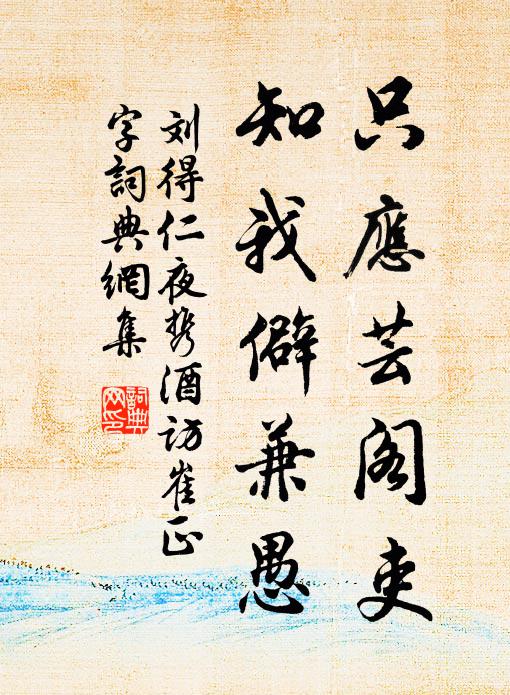 只應芸阁吏
知我僻兼愚
刘得仁夜携酒访崔正
字詞典網集
詞典
网印